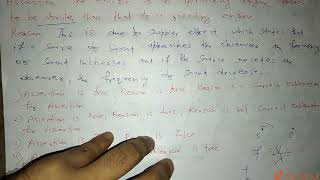 Assertion The whistle of an approaching engine seems
to be shriller than that of a receding engine
Reason This is due to Doppler effect which states that
if a source of sound approaches the observer the frequency
of sound increases and if the source recedes the
observer, the frequency of sound decreases.
1) Assertion is True, Reason is True, Reason is correct explanation
for Assertion
2) Assertion is True, Reason is True, Reason is not correct explanation
for Assertion
3) Assertion is is False
4) Reason is true